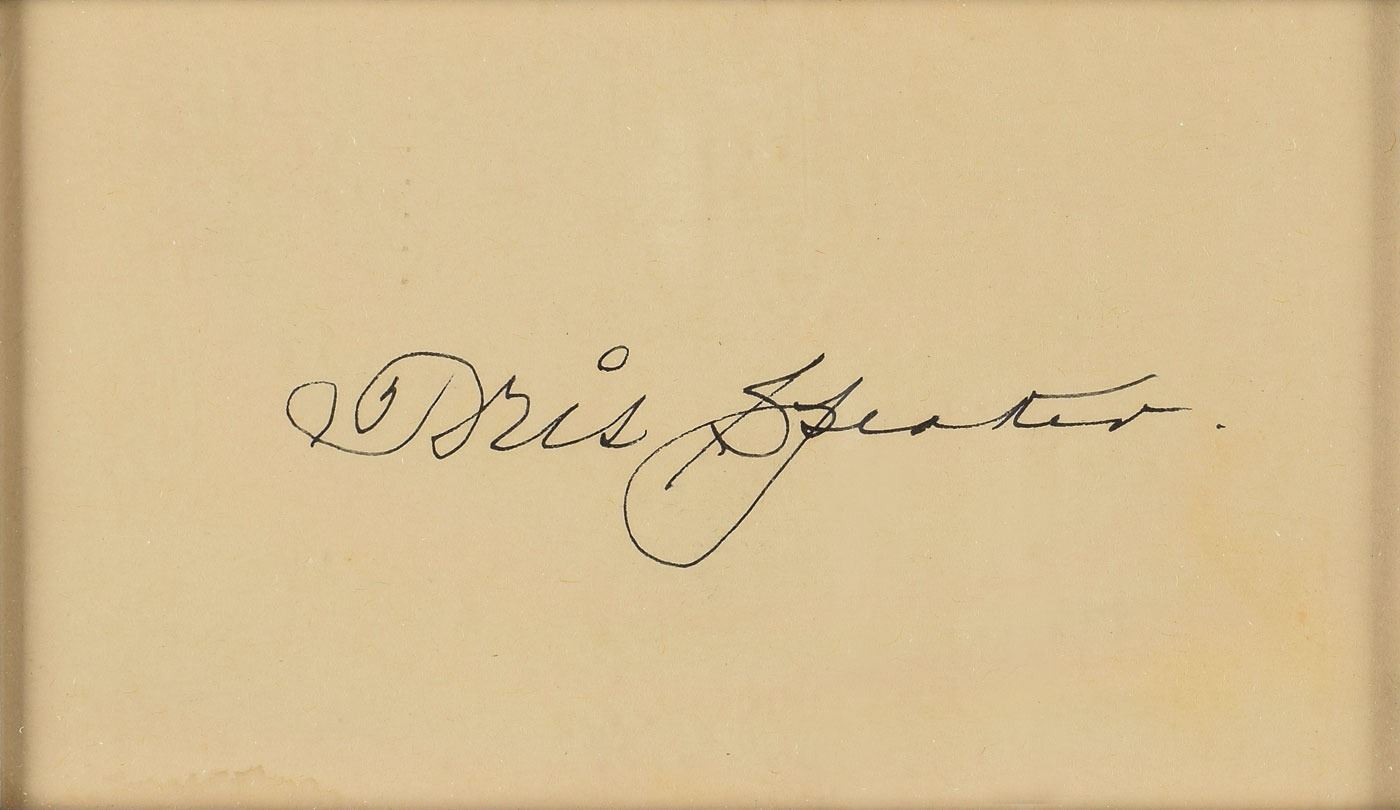 Tris Speaker.